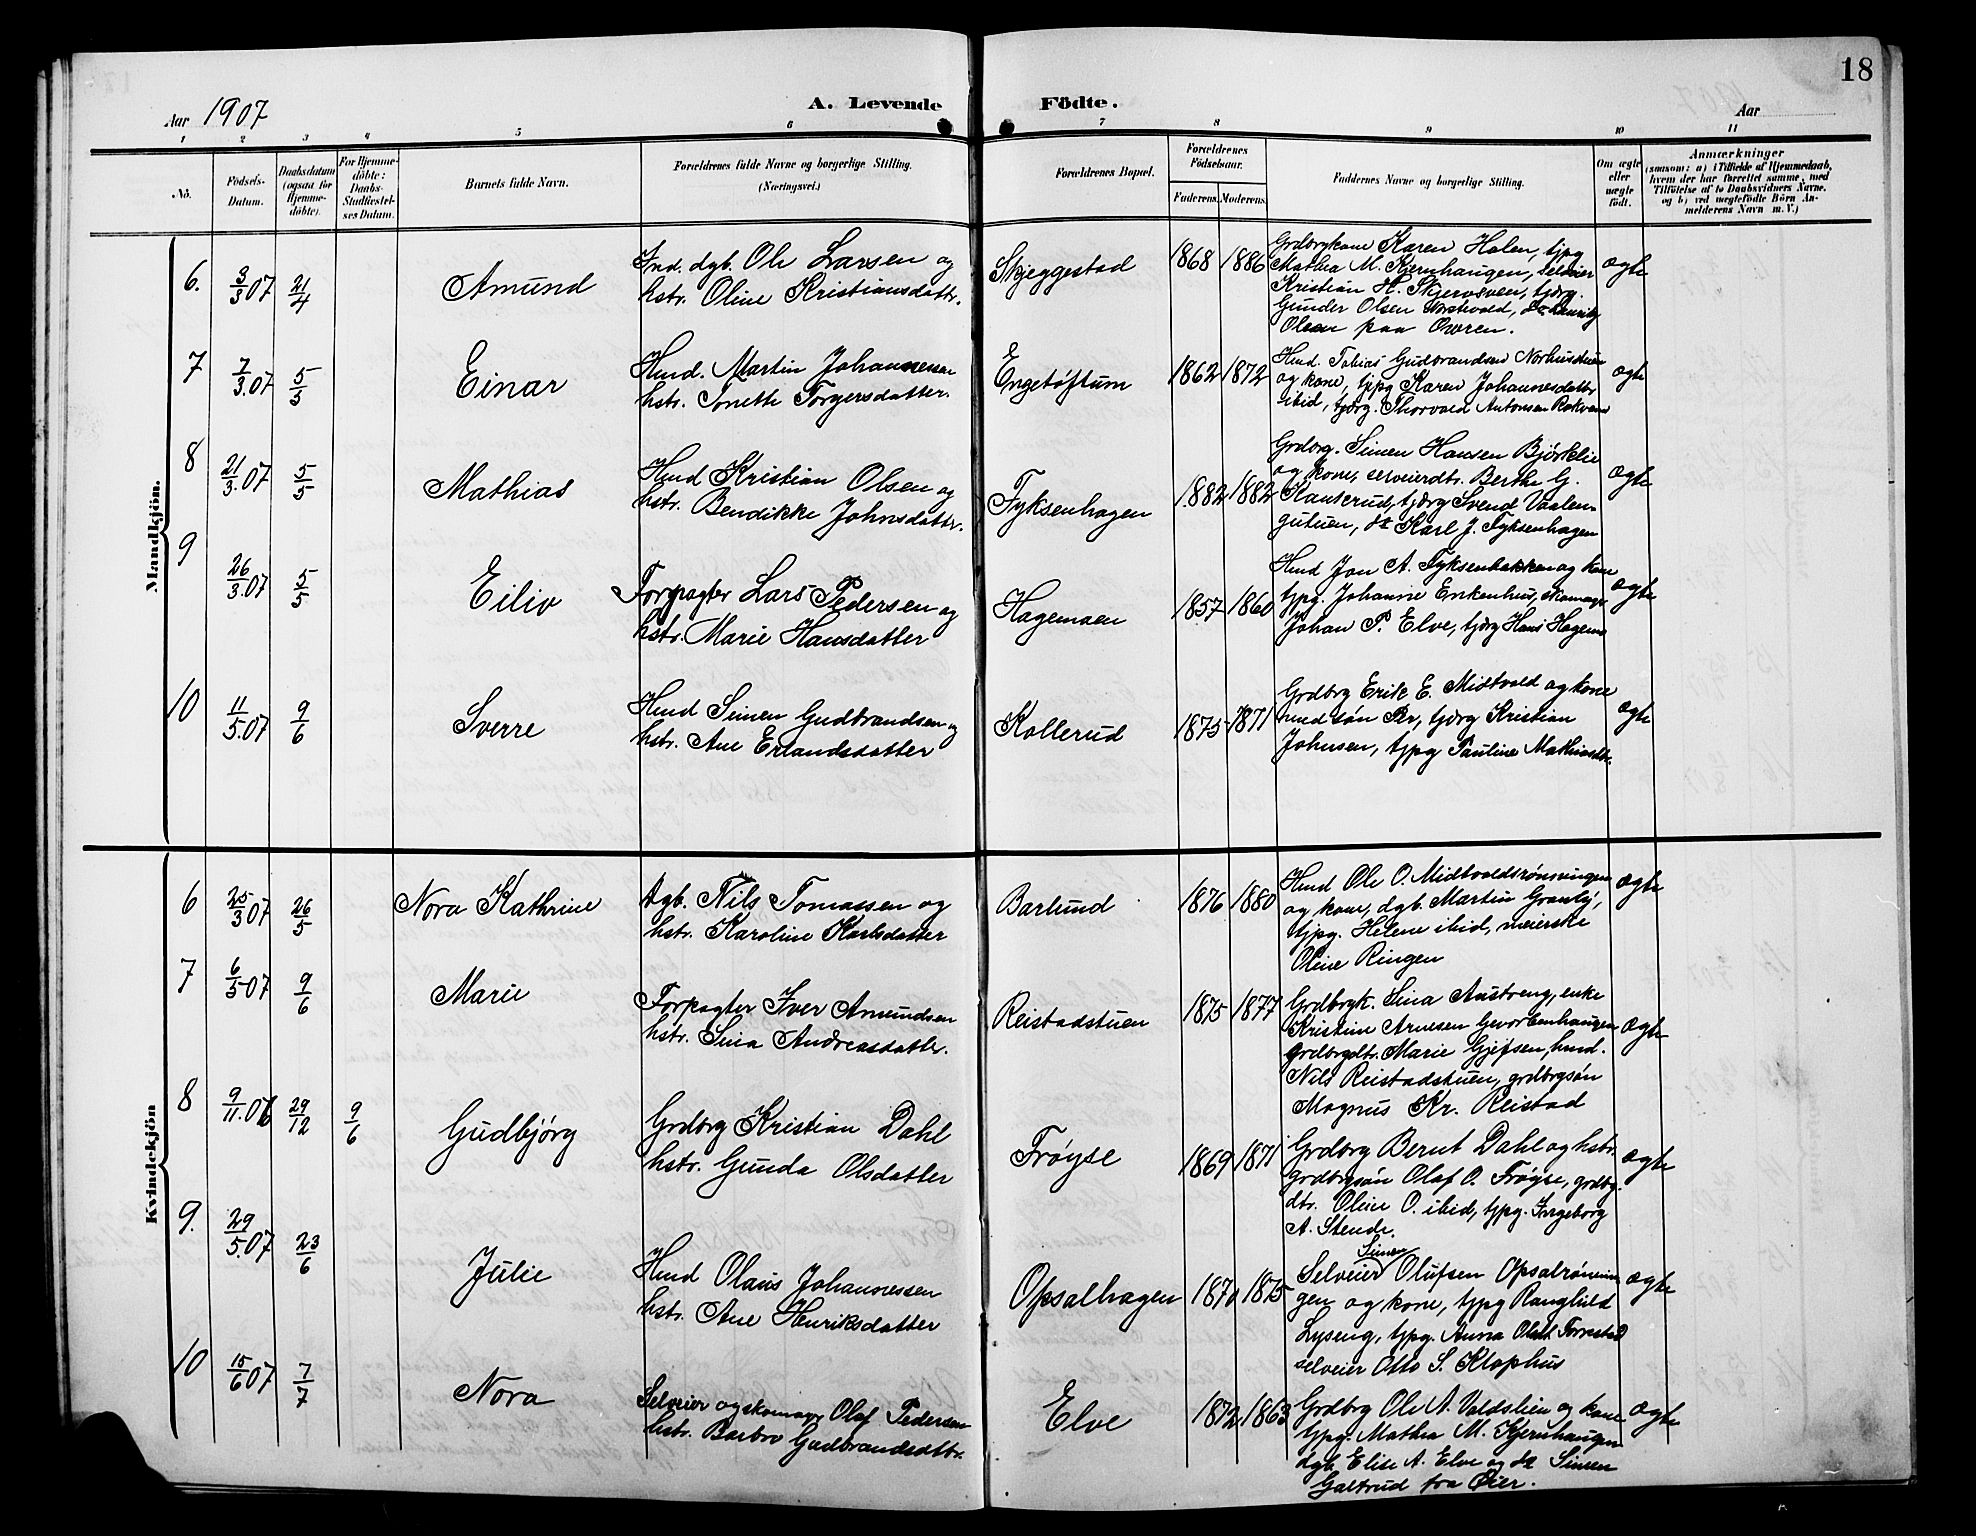 18
Aar 1907
A. Levende Födte.
Aar
1 2 3 4 5 6 7 8 9 10 11
No.
Födsels-
Datum.
Daabsdatum
(ogsaa for
Hjemme-
döbte).
For Hjemme-
döbte:
Daabs-
Stadfæstel-
ses Datum.
Barnets fulde Navn.
Forældrenes fulde Navne og borgerlige Stilling.
(Næringsvei.)
Forældrenes Bopæl.
Forældrenes
Födselsaar.
Faderens. Moderens.
Faddernes Navne og borgerlige Stilling.
Om ægte
eller
uægte
födt.
Anmærkninger
(saasom: a) i Tilfælde af Hjemmedaab,
hvem der har forrettet samme, med
Tilføielse af to Daabsvidners Navne.
og b) ved uægtefödte Börn An-
melderens Navn m. V.)
Mandkjön.
6. 3/3 07 21/4 Amund
Ind. dgb. Ole Larsen og
hstr. Oline Kristiansdattr.
Skjeggestad 1868 1886
Grdbrgkone Karen Holen, tjpg
Mathea M. Kjernhaugen, selveier
Kristian H. Skjervsveen, tjdrg.
Gunder Olsen Norstvold, do
Olsen paa Owren.
ægte
7 7/3.07 5/5 Einar
Hmd. Martin Johannessen
hstr. Tonette Torgersdatter.
Engetøftum 1862 1872
Hmd. Tobias Gudbrandsen Norhusstuen
og kone, tjpg Karen Johannesdattr
ibid, tjdrg. Thorvald Antonsen
ægte
8 21/3.07 5/5 Mathias
Hmd Kristian Olsen og
hstr. Bendikke Johnsdattr.
Fyksenhagen 1882 1882
Grdbrg. Simen Hansen Bjørklie
og kone, selveierdtr. Berthe G.
Klanserud, tjdrg Svend Vaalen-
gutuen, do Karl J. Fyksenhagen
ægte
9 26/3.07 5/5 Eiliv
Forpagter Lars Pedersen og
hstr. Marie Hansdatter
Hagemoen 1857 1860
Hmd Jon A. Fyksenbakken og kone
tjpg. Johanne Enkenhus, skomager
Johan P. Elve, tjdrg Hans Hagemo
ægte
10 11/5.07 9/6 Sverre
Hmd Simen Gudbrandsen og
hstr. Ane Erlandsdatter
Kollerud 1875 1871
Grdbrg Erik E. Midtvold og kone
hmd søn Per, tjdrg Kristian
Johnsen, tjpg Pauline Mathiasdtr.
ægte
Kvindekjön
6 25/3 07 26/5 Nora Kathrine
Dgb. Nils Tomassen og
hstr. Karoline Karlsdatter
Barlund 1876 1880
Hmd Ole O. Midtvoldsrønsvingen
og kone, dgb. Martin Granly,
tjpg. Helene ibid, meierske
Oline Ringen
ægte
7 6/5 07 9/6 Marie
Forpagter Iver Amundsen
hstr. Sina Andreasdatter.
Reistadstuen 1875 1877
Grdbrgk. Sina Austreng, enke
Kristine Arnesen Gevorbenhaugen
grdbrgdtr. Marie Gjefsen, hmd.
Nils Reistadstuen, grdbrgsøn
Magnus Kr. Reistad
ægte
8 9/11.06 29/12 9/6 Gudbjörg
Grdbrg Kristian Dahl
hstr. Gunda Olsdatter
Frøyse 1869 1871
Grdbrg Bernt Dahl og hstr.
grdbrgsøn Olaf O. Frøyse, grdbg.
dtr. Oline O. ibid, tjpg. Ingeborg
A. Stende.
ægte
9. 29/5.07 23/6 Julie
Hmd Olaus Johannessen
hstr. Ane Henriksdatter
Opsalhagen 1870 1875
Simen
Selveier Olufsen Opsalrønnin
gen og kone, tjpg Ranghild
Lyseng, tjpg. Anna Olsdt. Forrestad
selveier Otto S. Klophus
ægte
10 15/6 07 7/7 Nora
Selveier og skomag. Olaf Pedersen
hstr. Barbro Gudbrandsdattr.
Elve 1872 1863
Grdbrg Ole A. Valdslien og kone
tjpg. Mathea M. Kjernhaugen
dgb. Elise A. Elve og do Simen
Galtrud fra Öier.
ægte